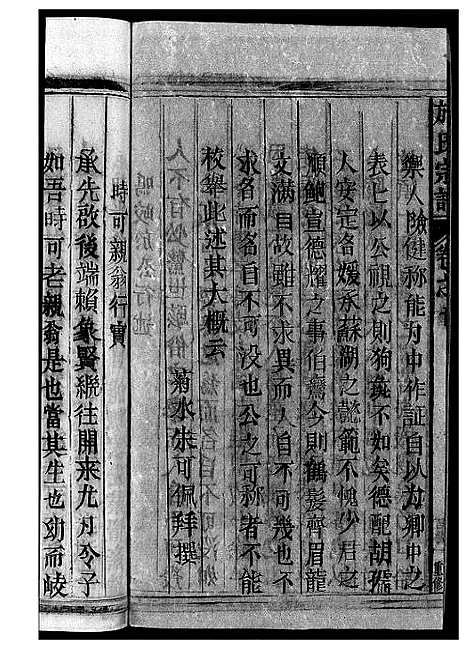 施氏宗譜
禦人險健称能为中作証自以为鄉中之
表七以公視之則狗彘不如矣德配胡孺
人安定名媛承蘇湖之懿範不愧少君之
順鮑宣德耀之事伯鸞今則鶴髮齊眉龍
文滿目故雖不求異而人自不可幾也不
求名而名自不可没也公之可称者不能
枚舉此述其大概云
菊水朱可佩拜撰
時可親翁行實
承先啟後端賴象賢繼往開来尤为令子
如吾時可老親翁是也當其生也幼而岐